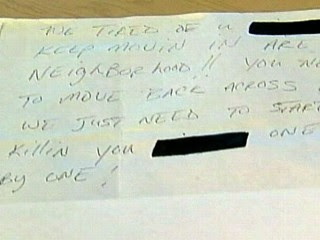 TIRED OF U
KEEP MOVIN IN ARE
NEIGHBORHOOD!! YOU
TO MOVE BACK ACROSS
WE JUST NEED TO START
KILLIN YOU ONE
BY ONE!